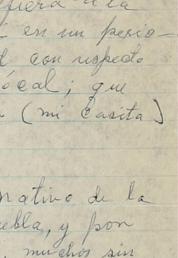 fiera a la
en un perio-
d con respecto
ocal; que
a (mi Casita)
nativo de la
ebla, y por
, muchos sin